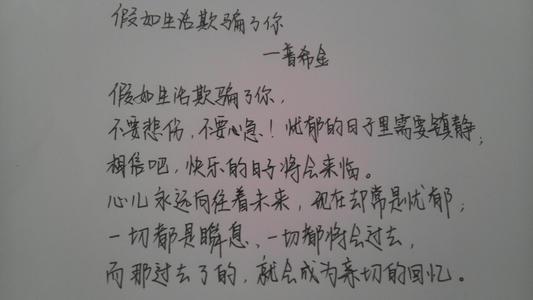 假如生活欺骗了你
—普希金
假如生活欺骗了你，
不要悲伤，不要心急！忧郁的日子里需要镇静；
相信吧，快乐的日子将会来临。
心儿永远向往着未来，现在却常是忧郁；
一切都是瞬息、一切都将会过去，
而那过去了的，就会成为亲切的回忆。